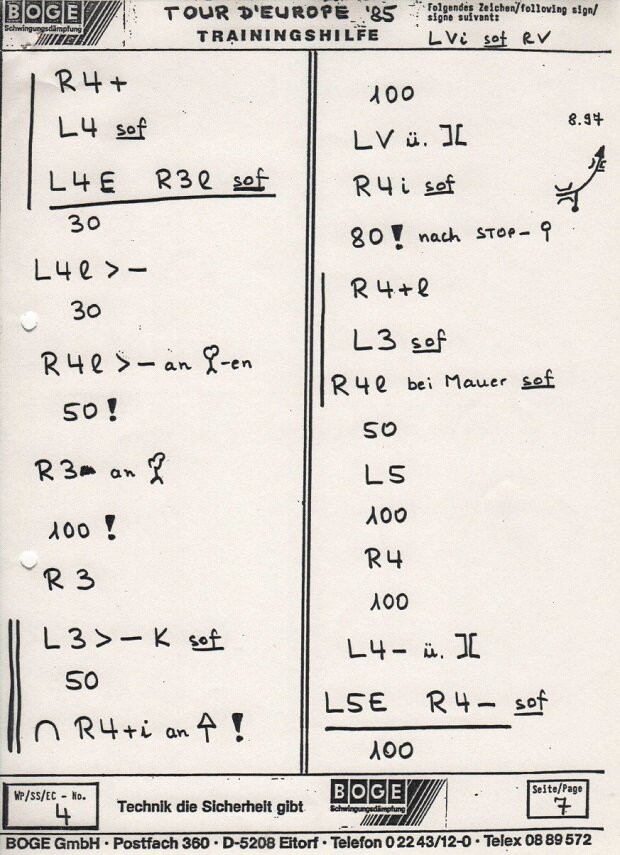 BOGE
Schwingungsdämpfung
TOUR D'EUROPE '85
TRAININGSHILFE
Folgendes Zeichen/following sign/
signe suivant:
LVi sof RV
R4+
L4 sof
L4E R3l sof
30
L4l >–
30
R4l >– an -en
50!
R3 an
100!
R3
L3 >– K sof
50
∩ R4+i an ↑ !
100
LV ü. ][
8.97
R4i sof
80! nach STOP–
R4+l
L3 sof
R4l bei Mauer sof
50
L5
100
R4
100
L4– ü. ][
L5E R4– sof
100
WP/SS/EC - No.
4
Technik die Sicherheit gibt
BOGE
Schwingungsdämpfung
Seite/Page
7
BOGE GmbH · Postfach 360 · D-5208 Eitorf · Telefon 0 22 43/12-0 · Telex 08 89 572